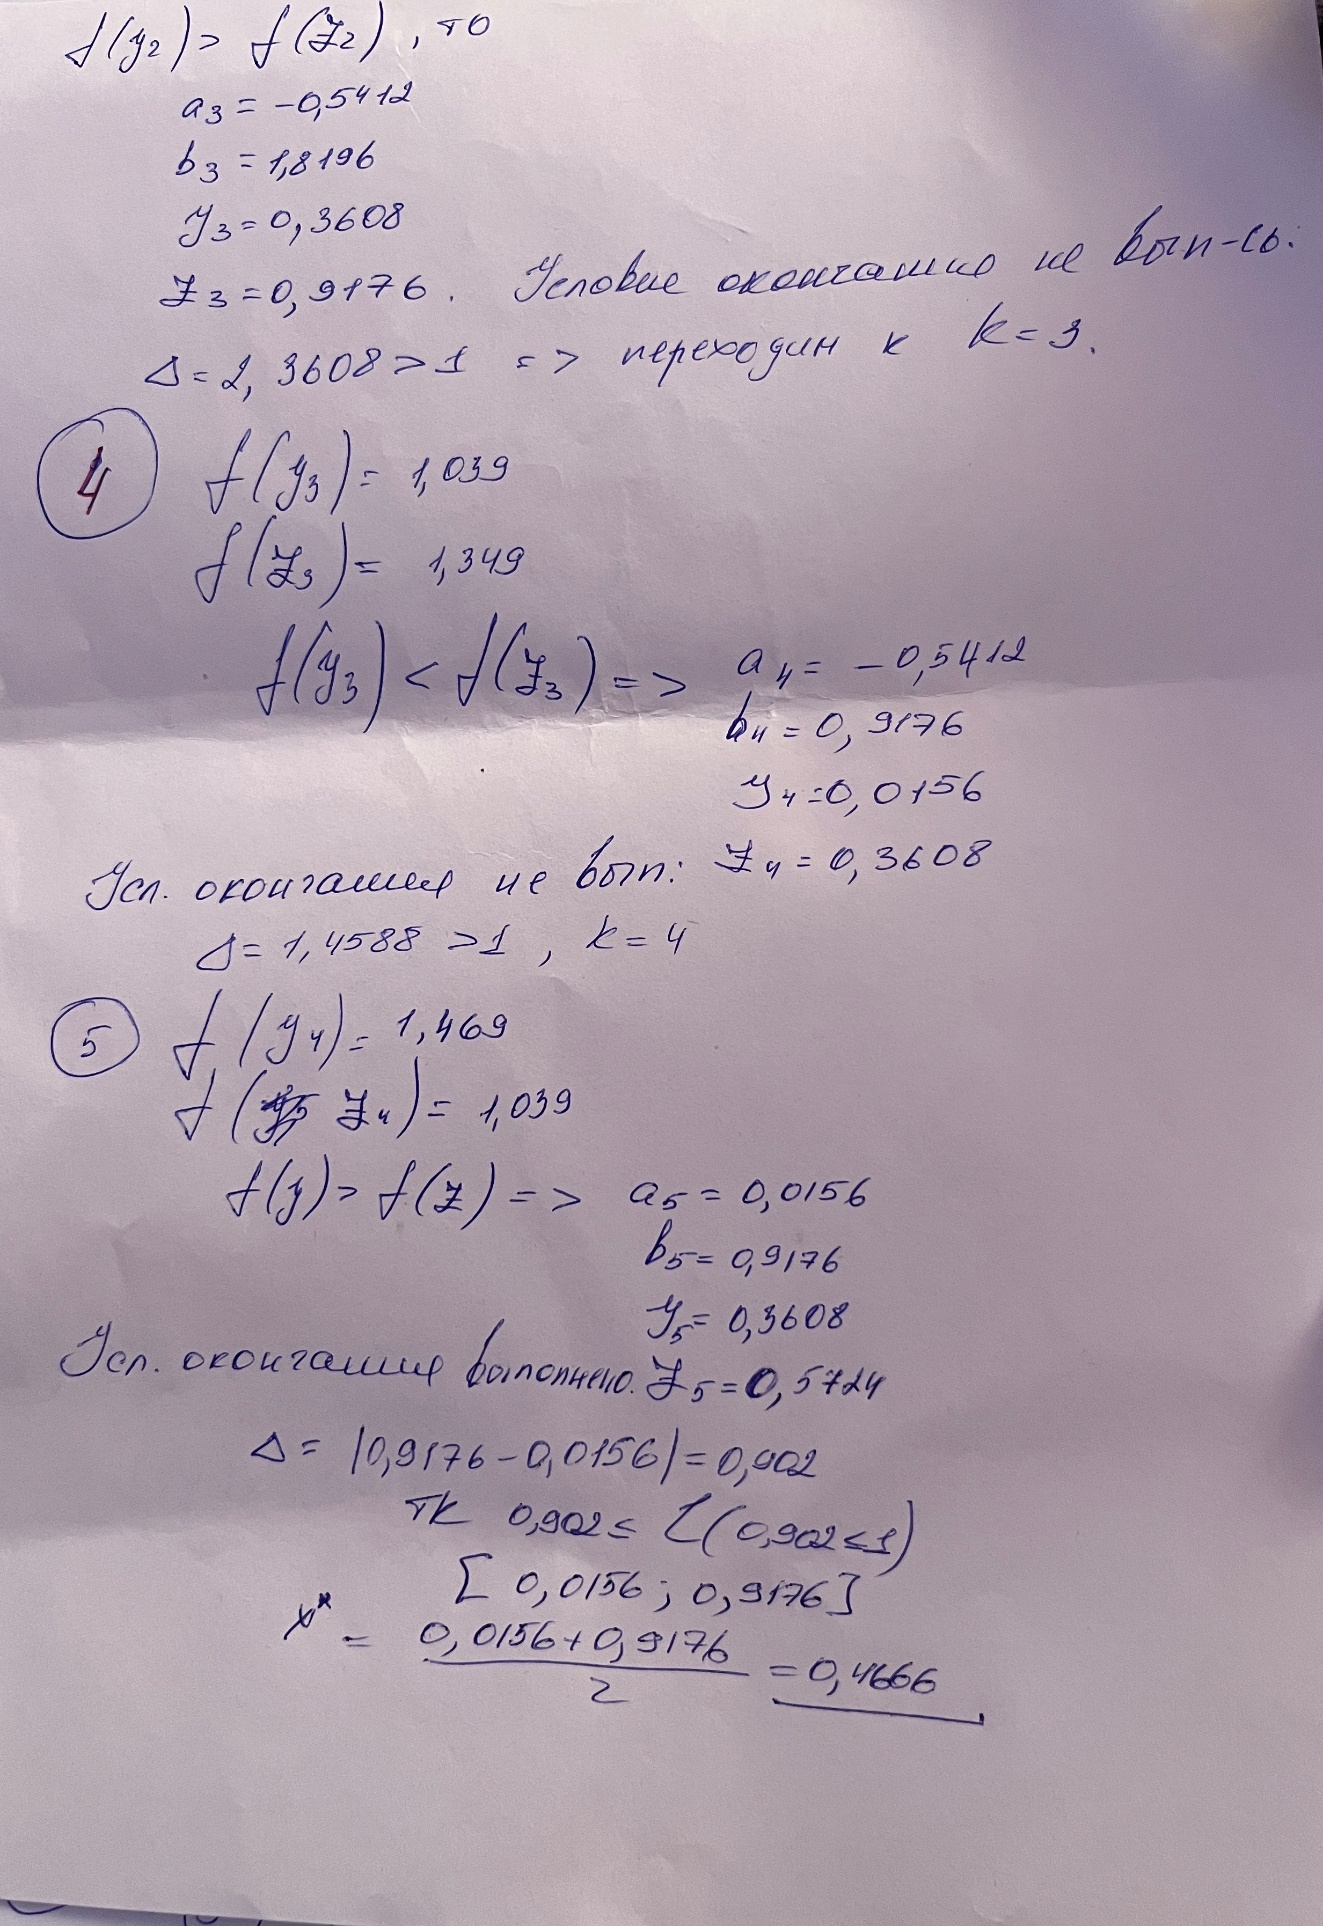 f(y₂) > f(z₂), то
a₃ = -0,5412
b₃ = 1,8196
y₃ = 0,3608
z₃ = 0,9176. Условие окончания не вып-сь:
Δ = 2,3608 > 1 => переходим к k = 3.
4 f(y₃) = 1,039
f(z₃) = 1,349
f(y₃) < f(z₃) => a₄ = -0,5412
b₄ = 0,9176
y₄ = 0,0156
Усл. окончания не вып: z₄ = 0,3608
Δ = 1,4588 > 1, k = 4
5 f(y₄) = 1,469
f(z₄) = 1,039
f(y) > f(z) => a₅ = 0,0156
b₅ = 0,9176
y₅ = 0,3608
Усл. окончания выполнено. z₅ = 0,5724
Δ = |0,9176 - 0,0156| = 0,902
тк 0,902 ≤ l (0,902 ≤ 1)
[0,0156; 0,9176]
x* = 0,0156 + 0,9176 / 2 = 0,4666